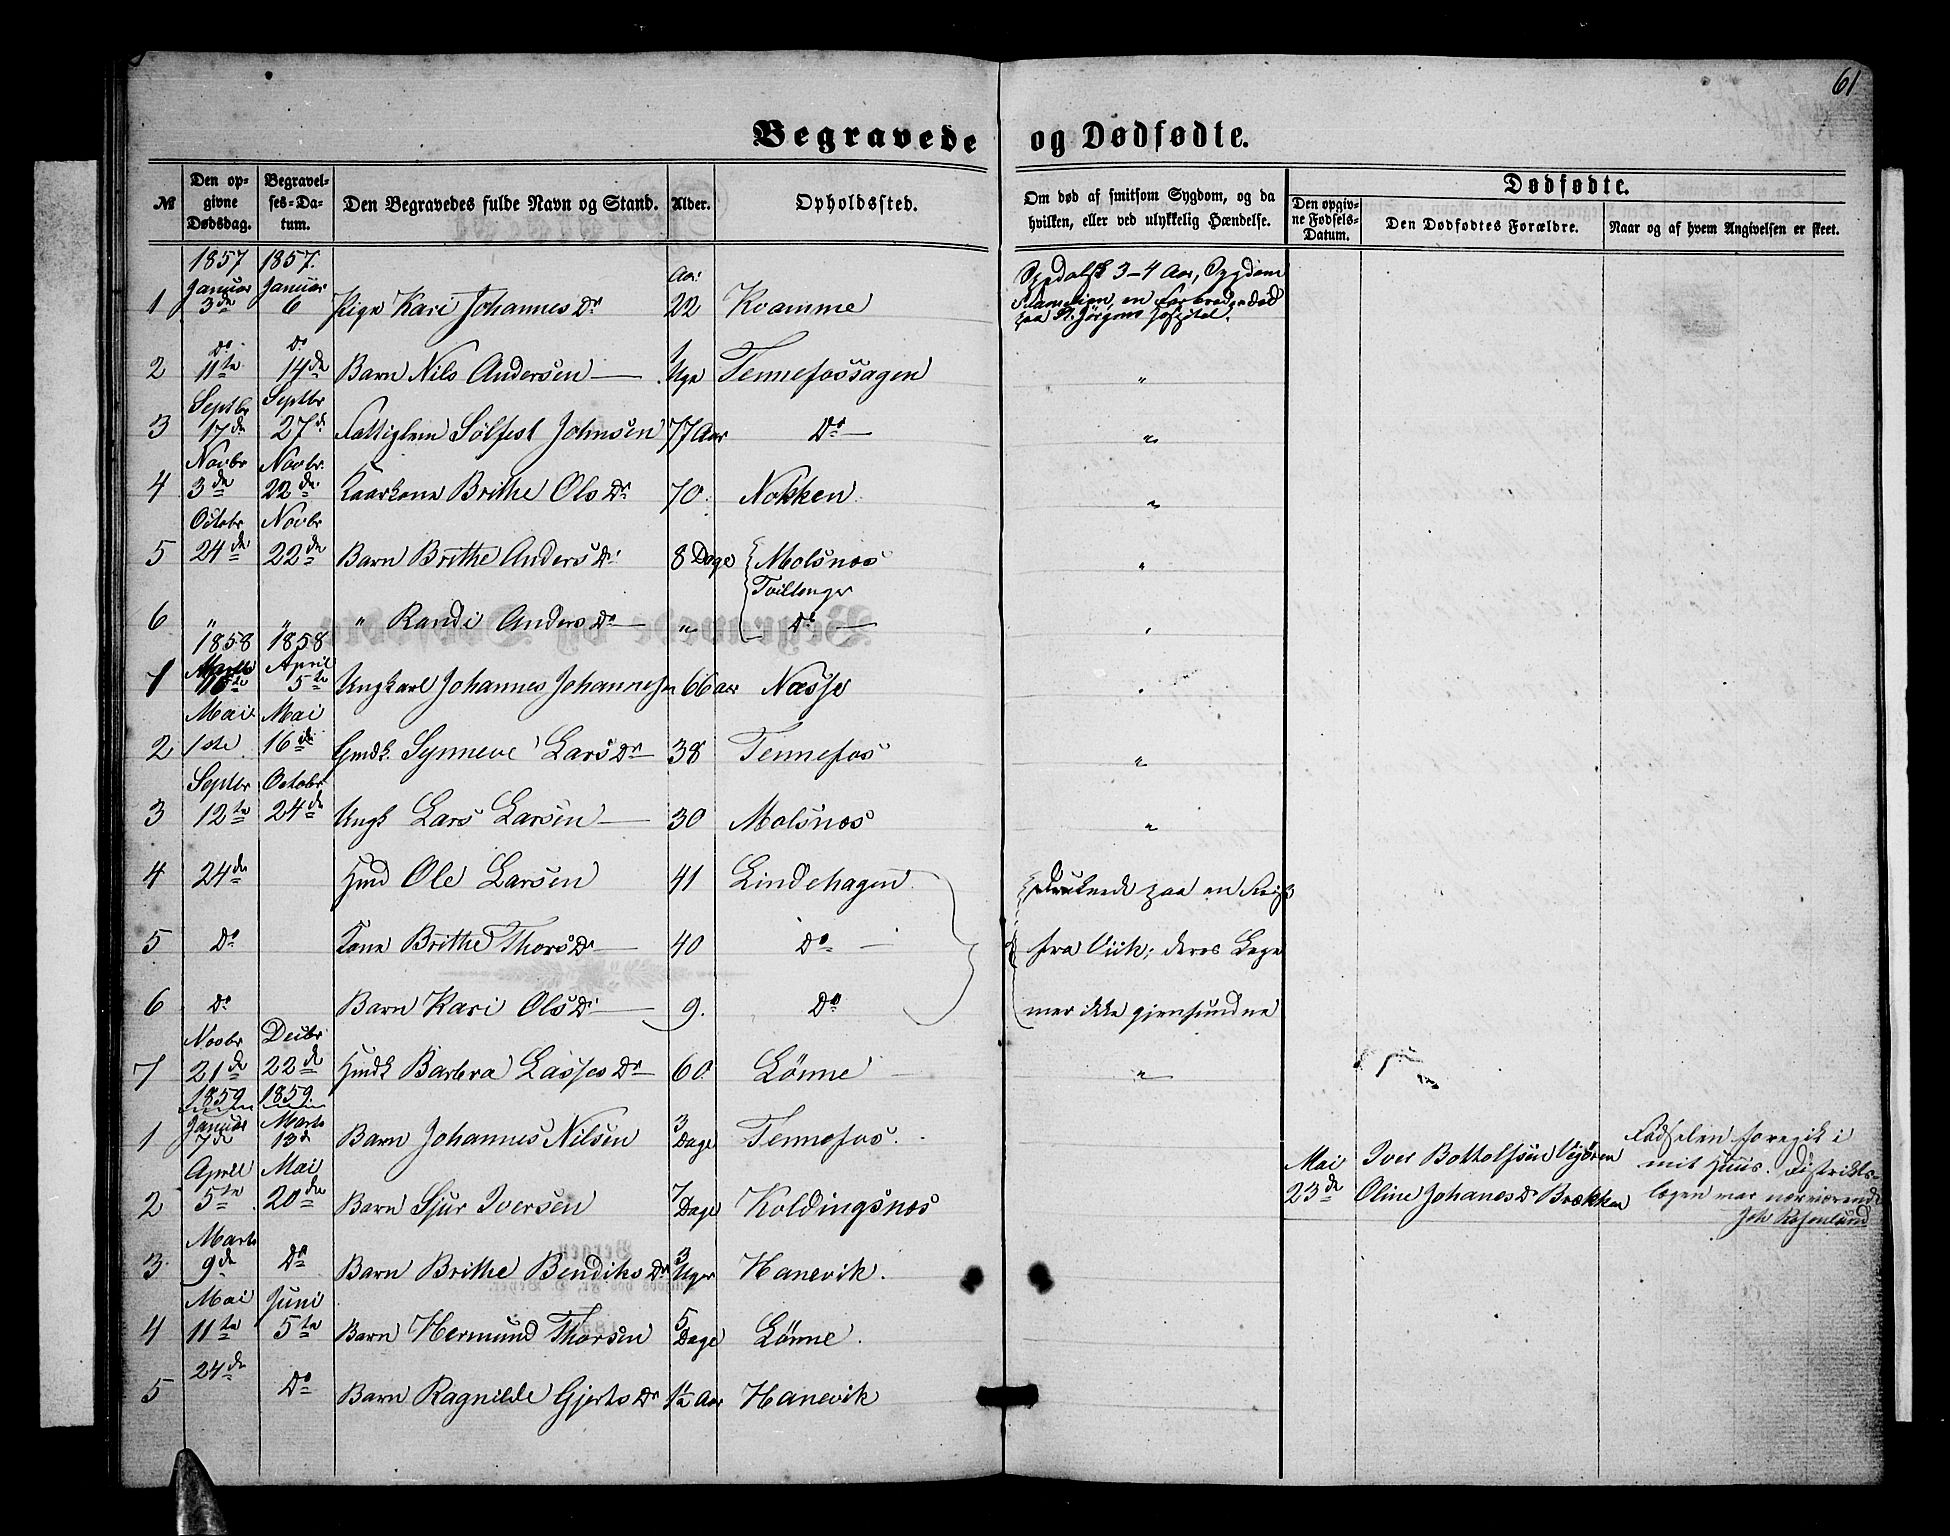 61
Begravede og Dødfødte.
№
Den opgivne Dødsdag.
Begravelses-Datum.
Den Begravedes fulde Navn og Stand.
Alder.
Opholdssted.
Om død af smitsom Sygdom, og da hvilken, eller ved ulykkelig Hændelse.
Dødfødte.
Den opgivne Fødsels-Datum.
Den Dødfødtes Forældre.
Naar og af hvem Angivelsen er skeet.
1857 1857.
1 Januar 3de Januar 6 Pige Kari Johannes Dr Aar 22 Kvamme 3-4 Aar, Sygdom
en
paa St. Jørgens Hospital.
2 Do 11te Do 14de Barn Nils Andersen 1 Uge Tennefossagen "
3 Septbr 17de Septbr 27de Fattiglem Sølfest Johnsen 77 Aar Do "
4 Novbr 3de Novbr. 22de Kaarkone Brithe Ols Dr 70. Nokken "
5 Octobr 24de Novbr 22de Barn Brithe Anders Dr 8 Dage Molsnæs "
Tvillinger
6 " " " Randi Anders Dr " Do "
1858 1858
1 Marts 16te April 5te Ungkarl Johannes Johannesen 66 aar Næsse "
2 Mai 1ste Mai 16de Gmdk. Synneve Lars Dr 38 Tennefos "
3 Septbr 12te Octobr 24de Ungk Lars Larsen 30 Molsnæs "
4 24de Hmd Ole Larsen 41 Lindehagen Druknede paa en Reise
5 Do Kone Brithe Thors Dr 40 Do fra Viik; deres Lege
6 Do Barn Kari Ols Dr 9. Do mer ikke gjenfundne
7 Novbr 21de Decbr 22de Hmdk Barbra Lasses Dr 60 Lønne "
1859 1859.
1 Januar 7de Marts 13de Barn Johannes Nilsen 3 Dage Tennefos.
Mai 23de Iver Bottolfsen
Oline Johanes Dr Brækken
Fødselen foregik i
mit Huus. Distrikts-
lægen var nærværende
Joh Rosenlund
2 April 5te Mai 20de Barn Sjur Iversen 7 Dage Koldingsnæs
3 Marts 9de Do Barn Brithe Bendiks Dr 3 Uger Hanevik.
4 Mai 11te Juni 5te Barn Hermund Thorsen 5 Dage Lønne.
5 24de Do Barn Ragnilde Gjerts Dr 1½ Aar Hanevik